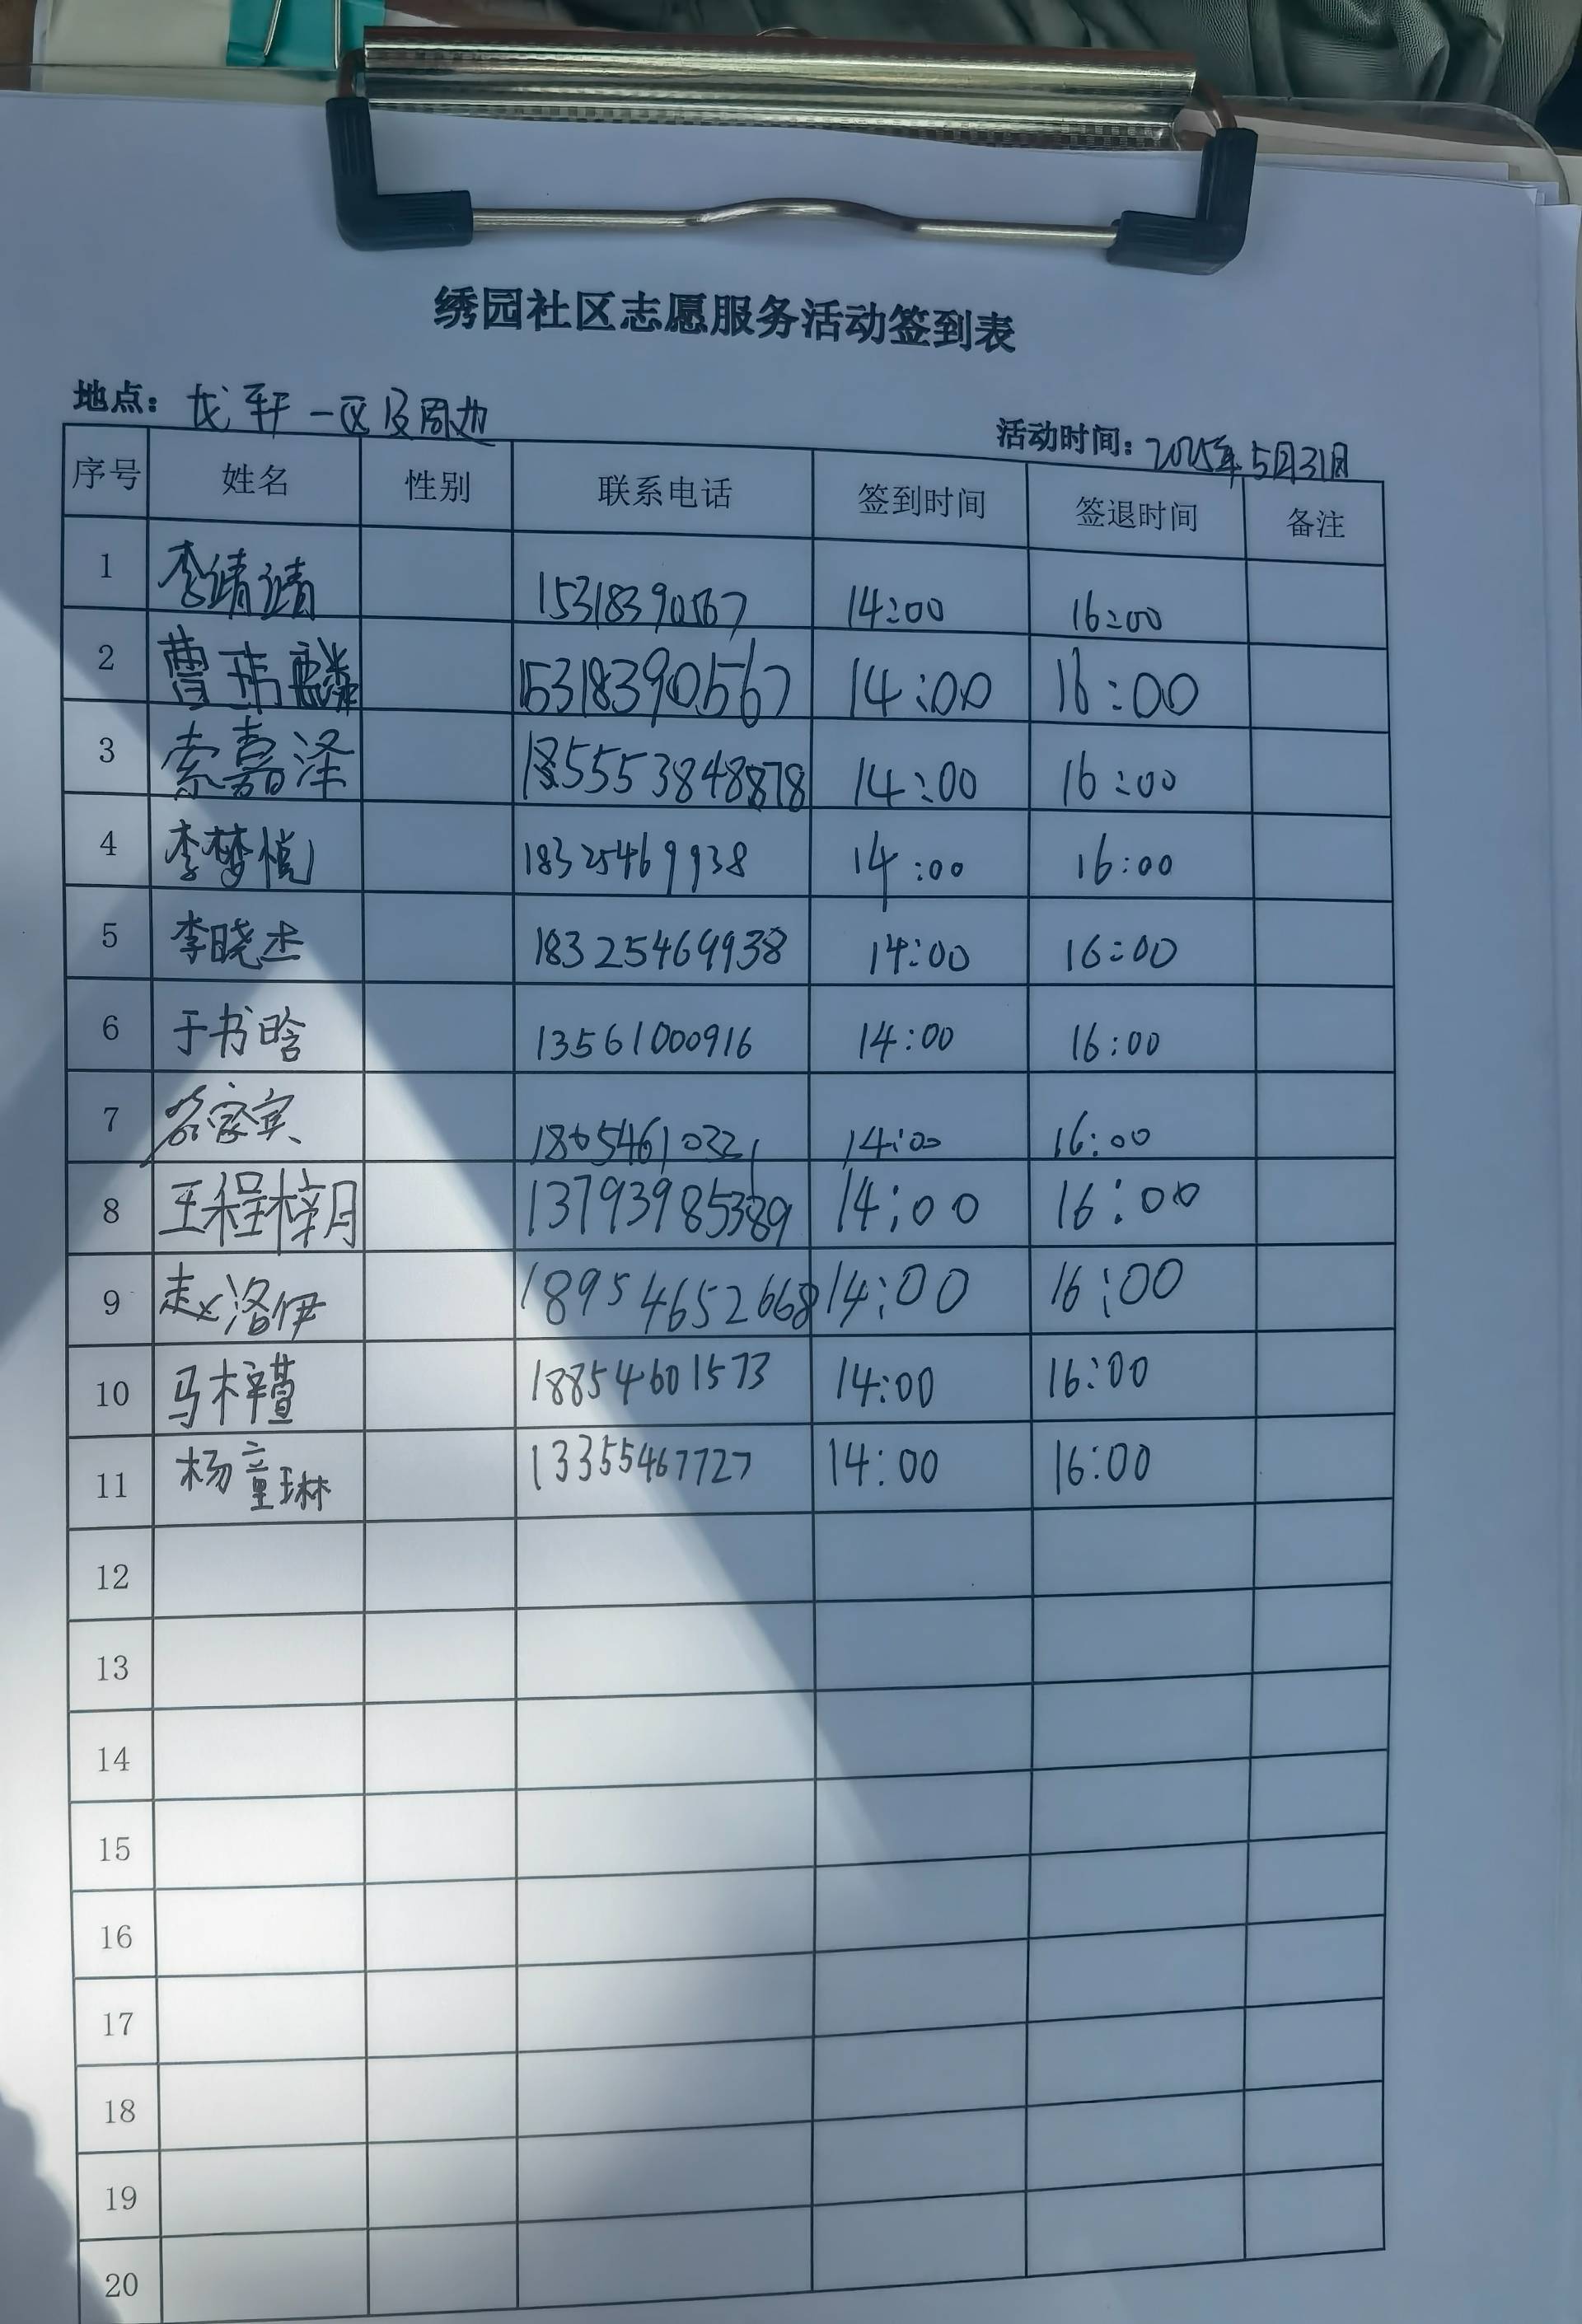 绣园社区志愿服务活动签到表
地点: 龙轩一区及周边 活动时间: 2025年5月31日
序号 姓名 性别 联系电话 签到时间 签退时间 备注
1 李靖靖 15318390567 14:00 16:00
2 曹玮麟 15318390567 14:00 16:00
3 索嘉泽 14:00 16:00
4 李梦悦 18325469938 14:00 16:00
5 李晓杰 18325469938 14:00 16:00
6 于书晗 13561000916 14:00 16:00
7 家宾 14:00 16:00
8 王程梓月 13793985389 14:00 16:00
9 赵洛伊 18954652668 14:00 16:00
10 马梓萱 18854601573 14:00 16:00
11 杨童琳 13355467727 14:00 16:00
12
13
14
15
16
17
18
19
20